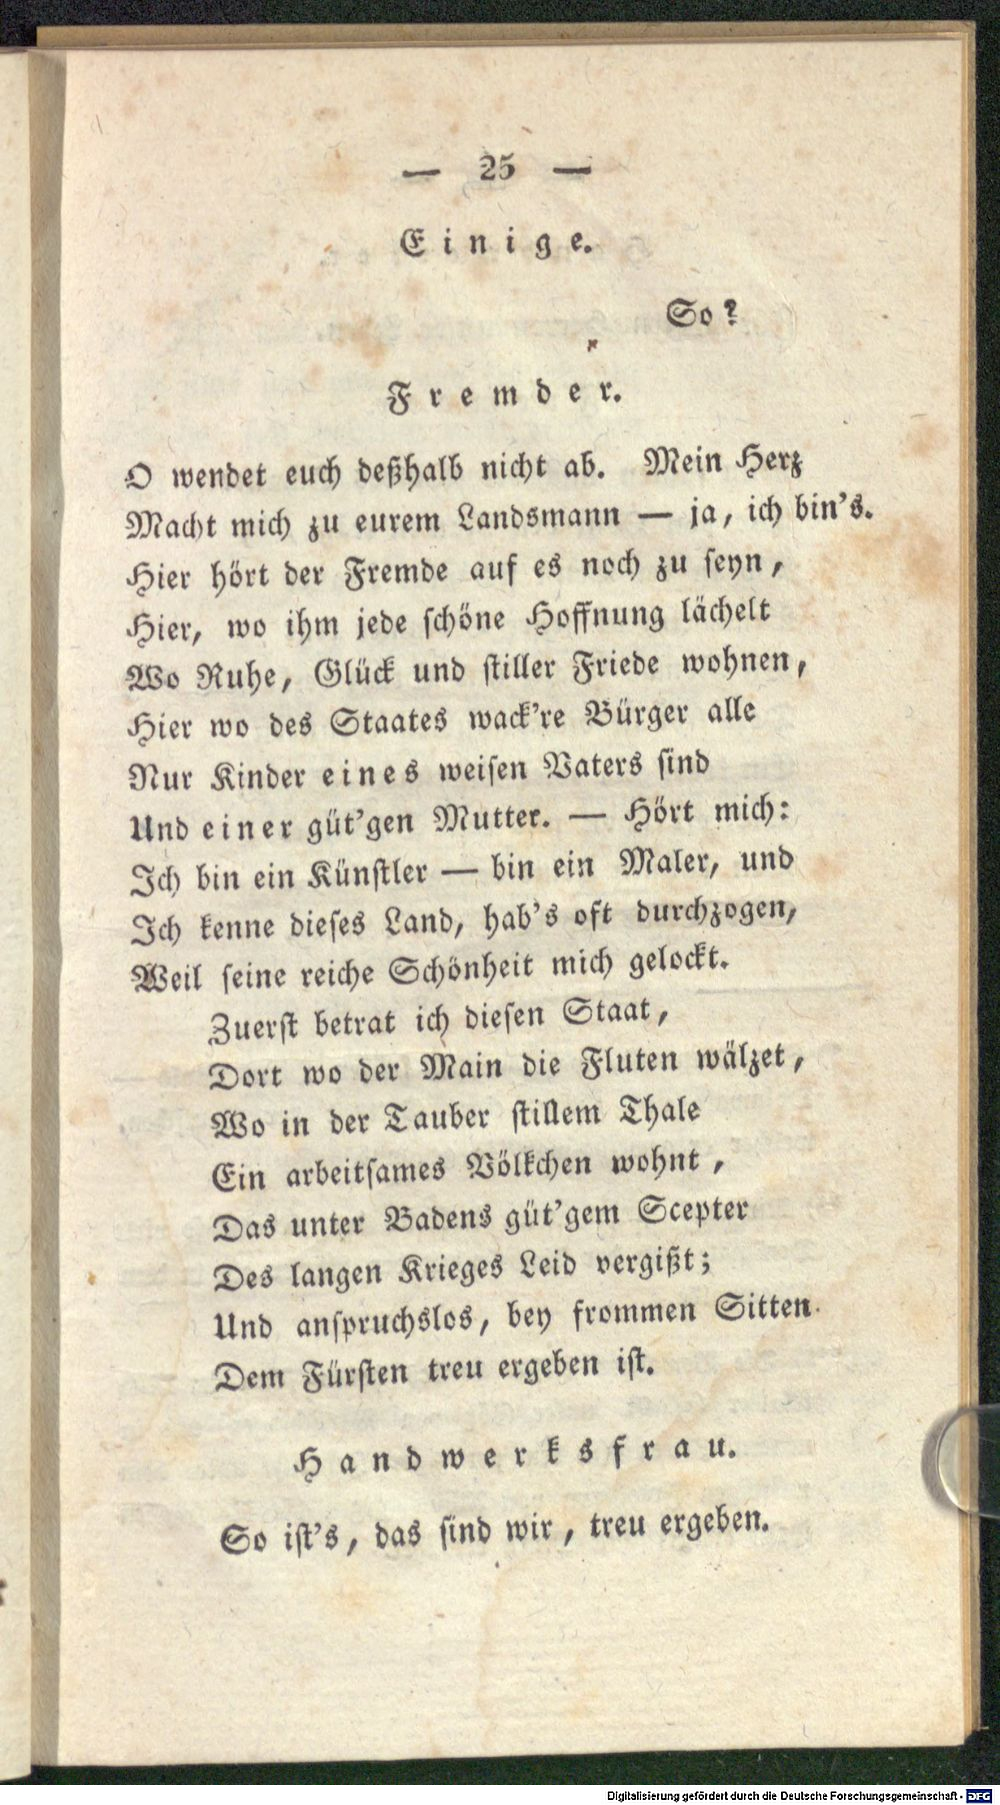 — 25 —
Einige.
So?
Fremder.
O wendet euch deßhalb nicht ab. Mein Herz
Macht mich zu eurem Landsmann — ja, ich bin's.
Hier hört der Fremde auf es noch zu seyn,
Hier, wo ihm jede schöne Hoffnung lächelt
Wo Ruhe, Glück und stiller Friede wohnen,
Hier wo des Staates wack're Bürger alle
Nur Kinder eines weisen Vaters sind
Und einer güt'gen Mutter. — Hört mich:
Ich bin ein Künstler — bin ein Maler, und
Ich kenne dieses Land, hab's oft durchzogen,
Weil seine reiche Schönheit mich gelockt.
Zuerst betrat ich diesen Staat,
Dort wo der Main die Fluten wälzet,
Wo in der Tauber stillem Thale
Ein arbeitsames Völkchen wohnt,
Das unter Badens güt'gem Scepter
Des langen Krieges Leid vergißt;
Und anspruchslos, bey frommen Sitten
Dem Fürsten treu ergeben ist.
Handwerksfrau.
So ist's, das sind wir, treu ergeben.
Digitalisierung gefördert durch die Deutsche Forschungsgemeinschaft - DFG